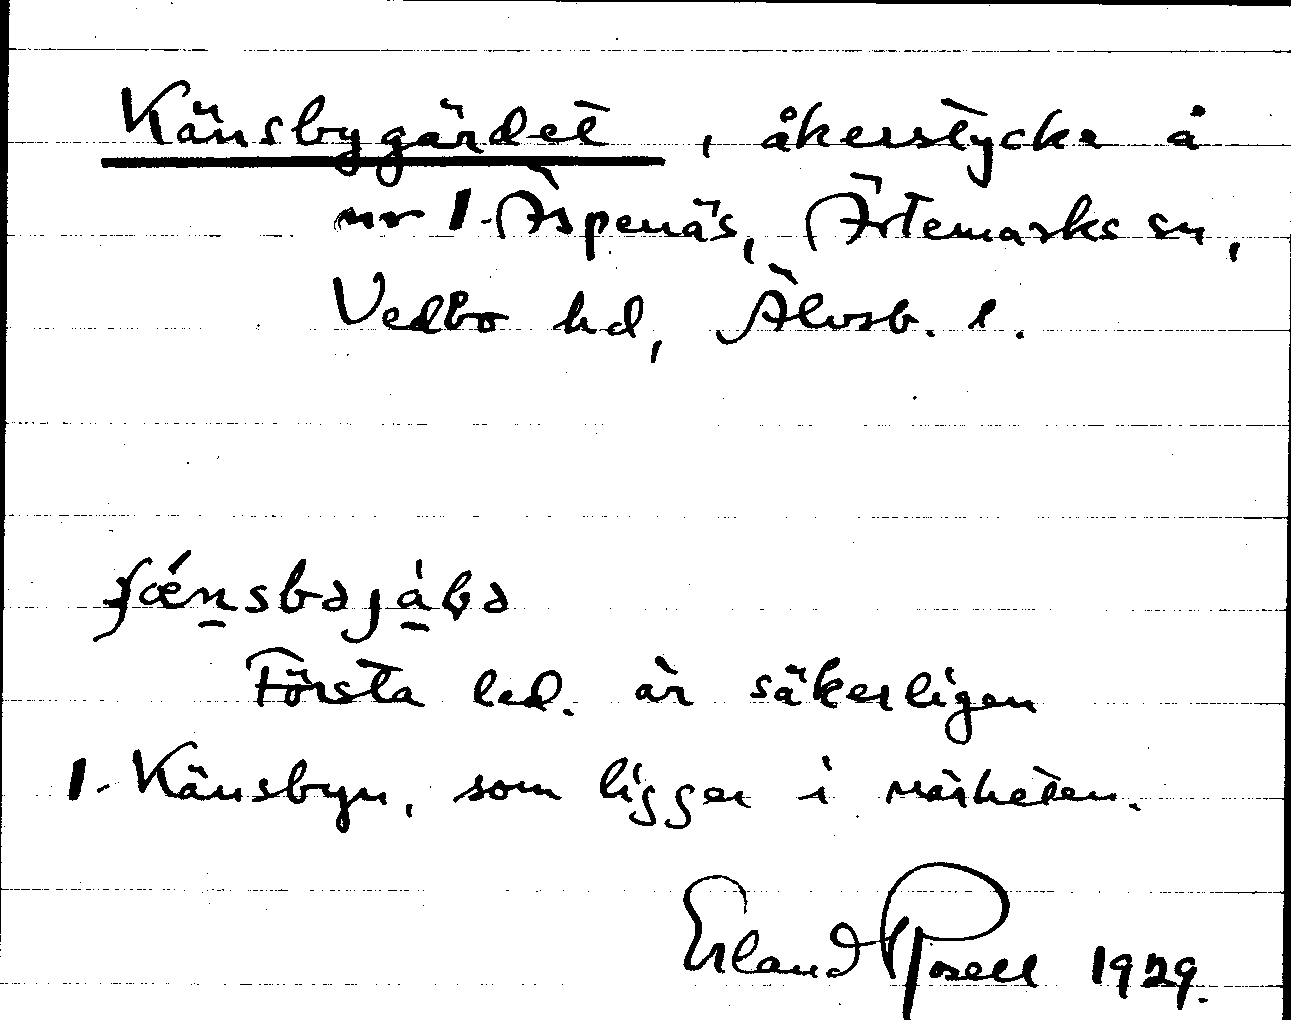 Känsbygärdet, åkerstycke å
nr 1 Äspenäs, Ärtemarks sn,
Vedbo hd, Älvsb. l.
Första led. är säkerligen
1. Känsbyn, som ligger i närheten.
Erland Rosell 1929.